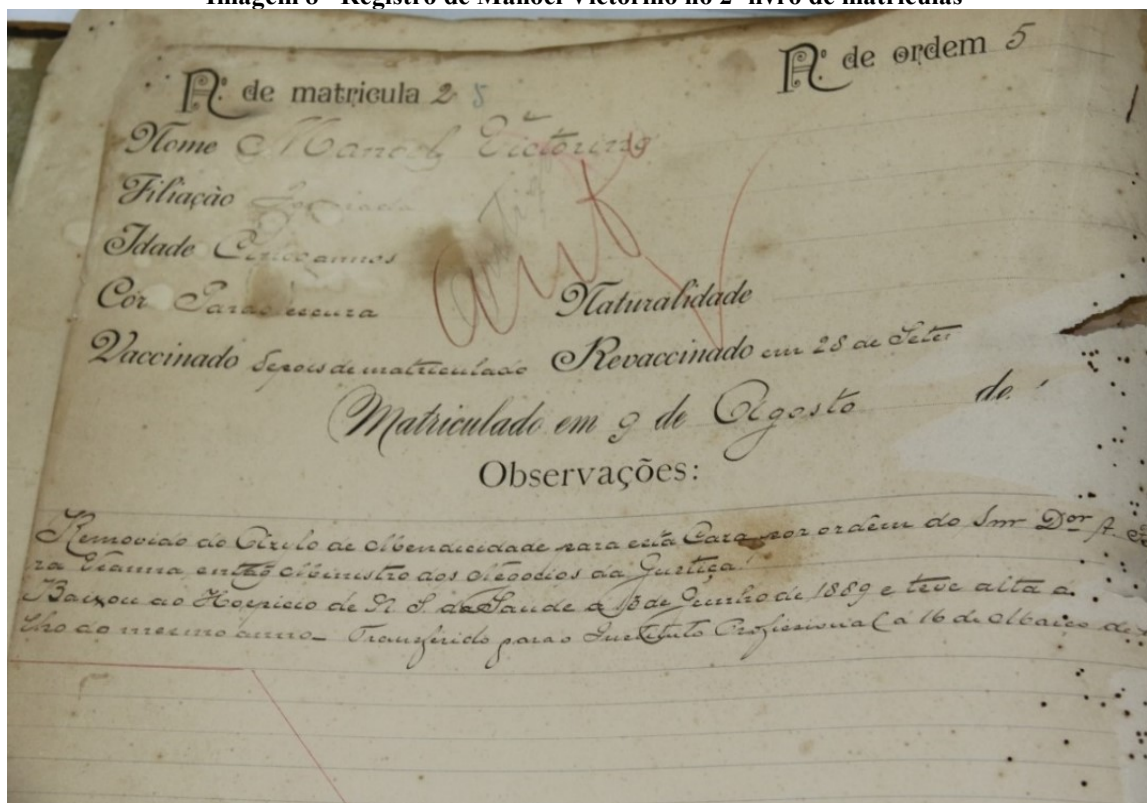 Imagem 8 - Registro de Manoel Victorino no 2º livro de matrículas
Nº de matricula 2 8
Nº de ordem 5
Nome Manoel Victorino
Filiação Ignorada
Idade Cinco annos
Côr Parda escura
Naturalidade
Vaccinado depois de matriculado Revaccinado em 28 de Sete
Matriculado em 9 de Agosto de
Observações:
Removido do Asylo de Mendicidade para esta Casa por ordem do Snr Dor
ra Vianna então Ministro dos Negocios da Justiça.
Baixou ao Hospicio de N. S. da Saude a 13 de Junho de 1889 e teve alta a
lho do mesmo anno_ Transferido para o Instituto Profissional a 16 de Março de